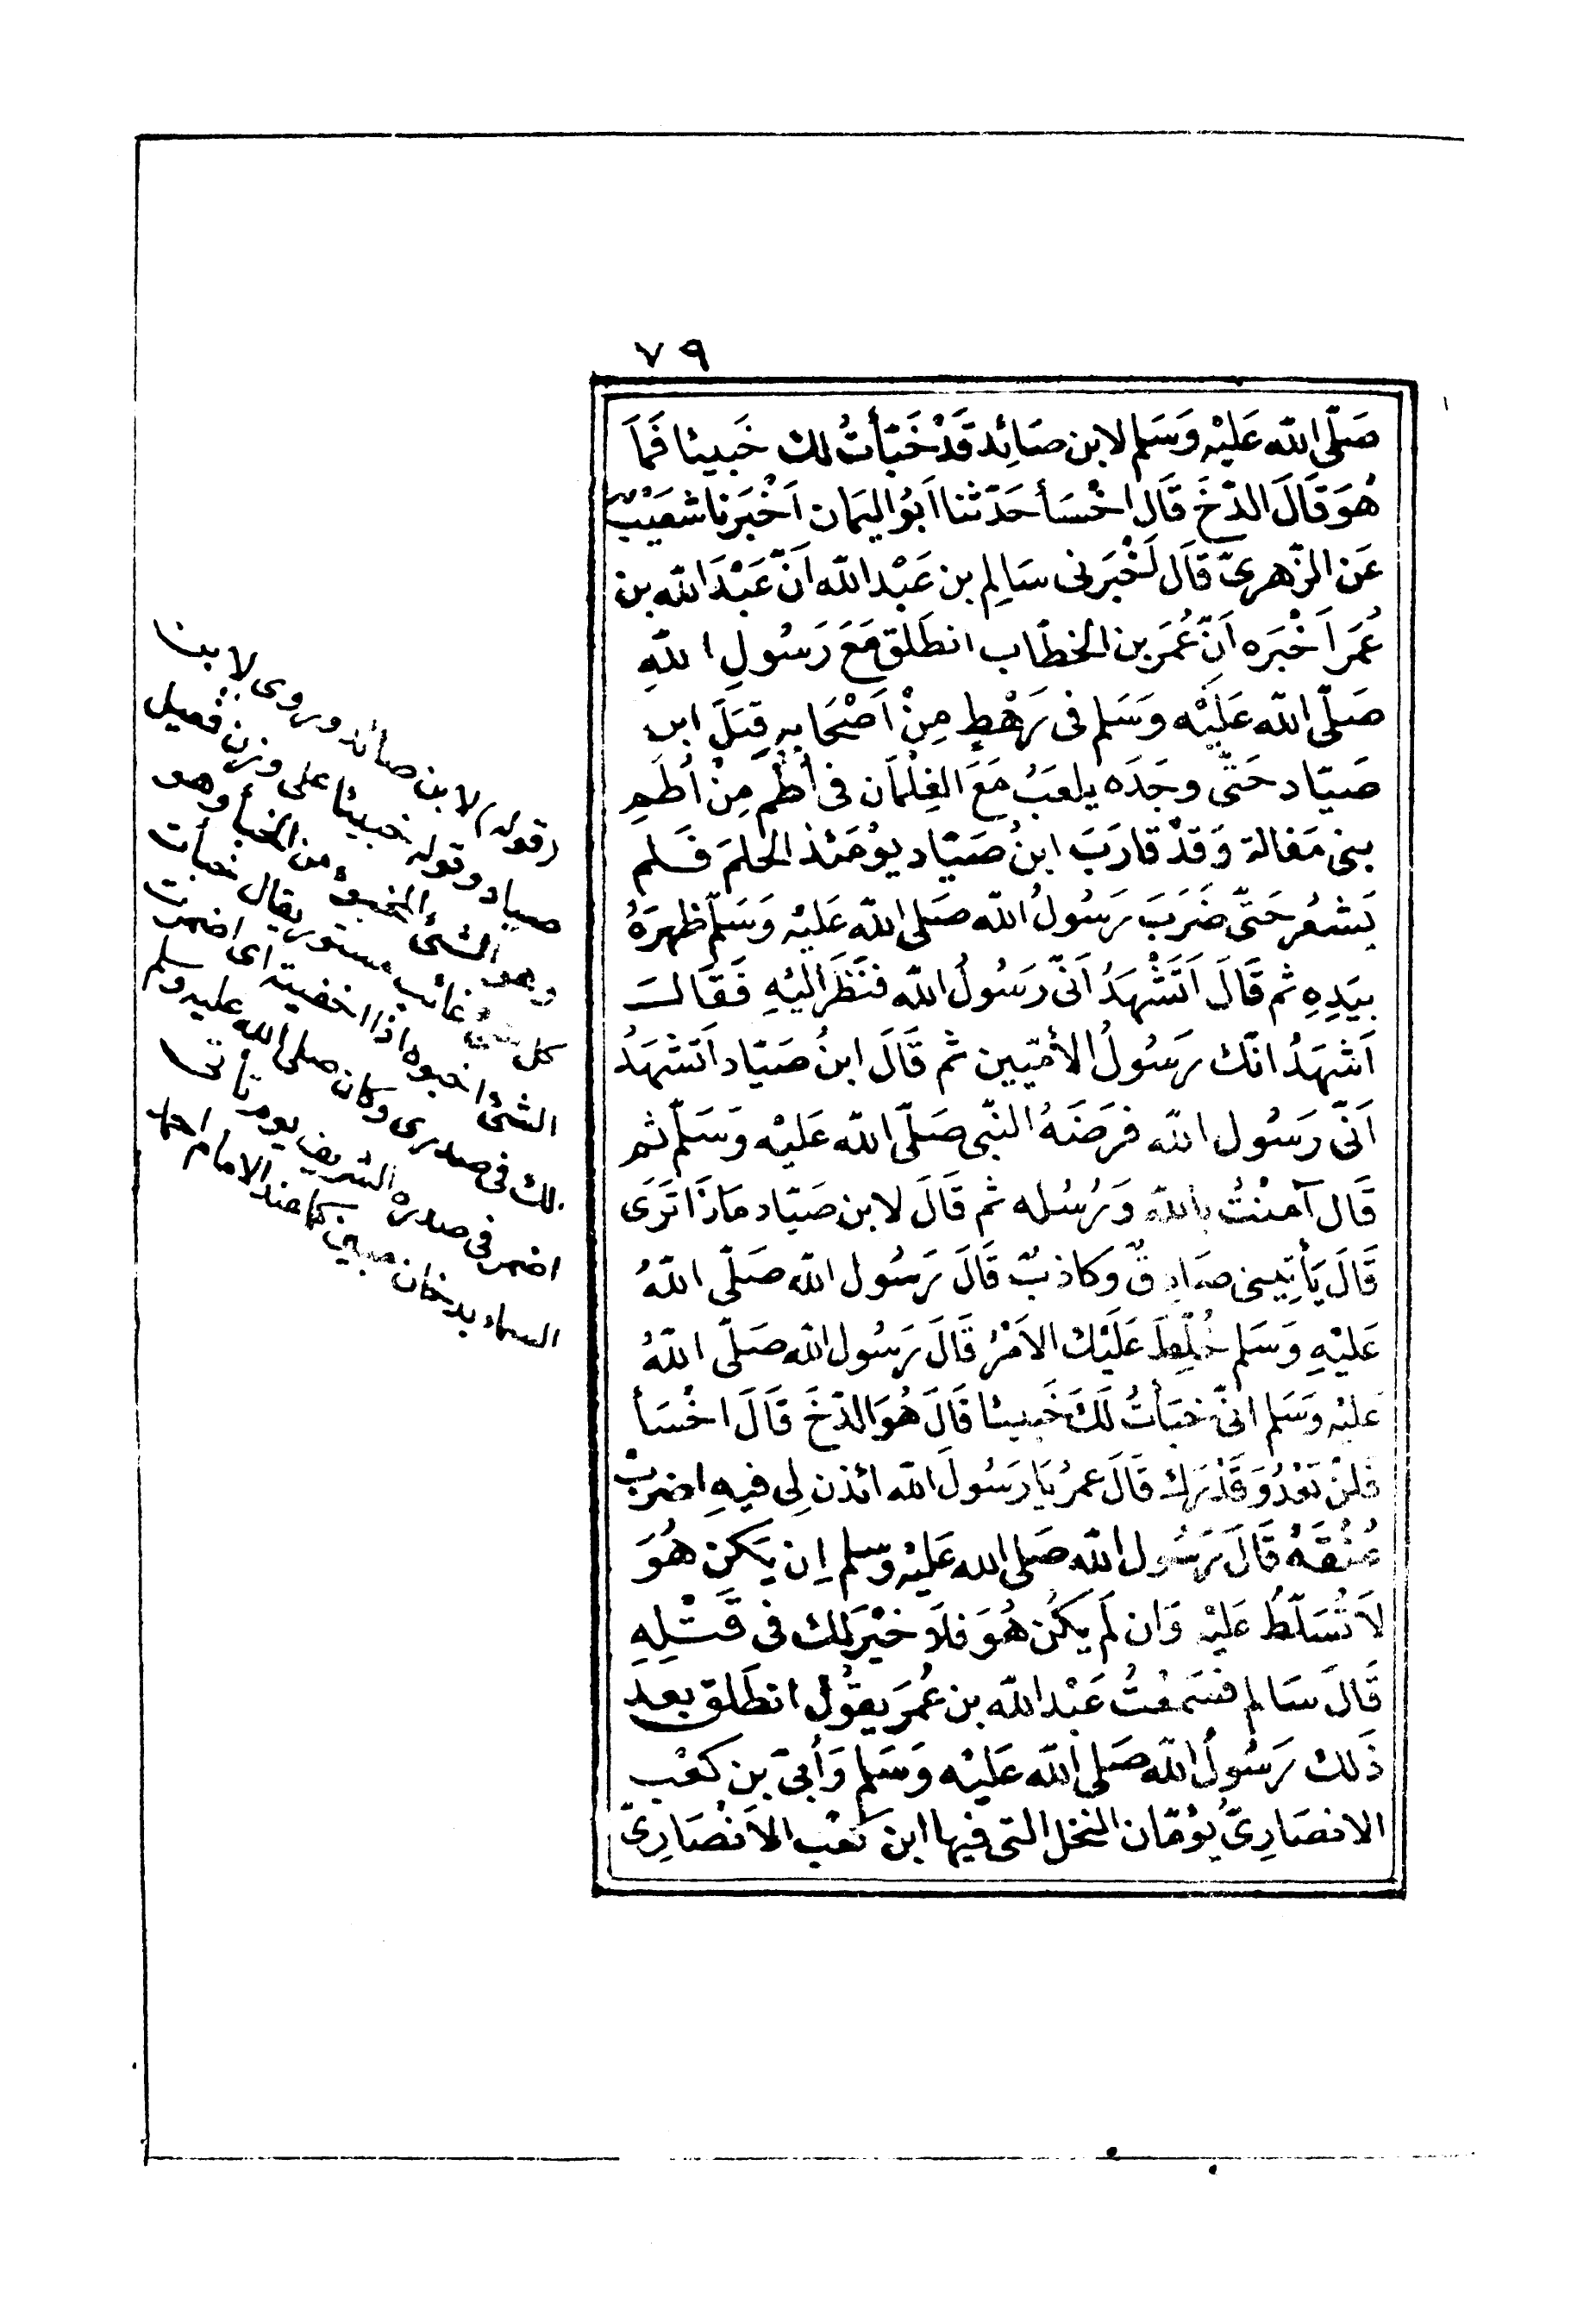 ٧٩
صَلّى الله عَليْه وَسَلم لابن صَائِد قَدْ خَبّأتُ لك خَبيئا فَمَا
هُوَ قَالَ الدّخَ قَال اخْسَأ حَدّثنا اَبُو اليَمان اَخْبَرنا شعَيْبٌ
عَن الزّهرىّ قَال اَخْبَرنى سَالِم بن عَبْد الله اَنّ عَبْدَ الله بن
عُمَر اَخْبَره اَنّ عُمَر بن الخطّاب انطَلق مَعَ رَسُولِ اللهِ
صَلّى الله عَليْه وَسَلم فى رَهْطٍ مِنْ اَصْحَابِهِ قِبَلَ ابن
صَيّاد حَتّى وجَدَه يلعَبُ مَعَ الغِلْمَان فى أُطُم مِنْ أُطُمِ
بنى مَغالة وَقدْ قارَبَ ابنُ صَيّاد يوْمَئذ الحلمَ فَلم
يَشعُر حَتّى ضَرَبَ رَسُولُ الله صَلى الله عَليْه وَسَلّم ظهرَهُ
بيَدِهِ ثم قَالَ اَتَشْهَدُ اَنّى رَسُولُ الله فنَظَرَ اليْهِ فَقَالَ
اَشهَدُ انّك رَسُولُ الأمّيين ثم قَالَ ابنُ صَيّاد اَتَشْهَدُ
اَنّى رَسُول الله فرَضَهُ النّبى صَلّى الله عَليْه وَسَلّم ثم
قَال آمنْتُ بالله وَرُسُله ثم قَالَ لابن صَيّاد مَاذَا تَرَى
قَالَ يَأتِينى صَادِقٌ وكَاذبٌ قَالَ رَسُول الله صَلّى اللهُ
عَليْهِ وَسَلم خُلِّطَ عَلَيْك الاَمْرُ قَالَ رَسُول الله صَلّى اللهُ
عَليْه وَسَلم انّى خبَأتُ لَكَ خَبيئا قَالَ هُوَ الدّخَ قَالَ اخْسَأ
فلنْ تَعْدُوَ قَدْرَك قَالَ عمرُ يَا رَسُولَ الله ائذن لِى فيهِ اضربْ
عُنُقَهُ قَالَ رَسُول الله صَلى الله عَليْه وسلم اِن يَكن هُوَ
لاَ تُسَلّطُ عَليْه وَان لَم يكُن هُوَ فلاَ خَيْرَ لك فى قَتْلِهِ
قَالَ سَالم فسَمعْتُ عَبْد الله بن عُمَر يقُولُ انطَلق بعد
ذَلك رَسُولُ الله صَلى الله عَليْه وَسَلم وَأُبىّ بن كعْب
الانصَارِىّ يَؤمّان النخل التى فيها ابن كعْب الاَنْصَارِىّ
(قوله) لا بن صائد وروى لابن
صياد وقوله خبيئا على وزن فعيل
وهو الشئ المخبوء من الخبأ وهو
كل شئ غائب مستور يقال خبأت
الشئ اخبوه اذا اخفيته اى اضمرت
لك فى صدرى وكان صلى الله عليه وسلم
اضمر فى صدره الشريف يوم تأتى
السماء بدخان مبين كما عند الامام احمد